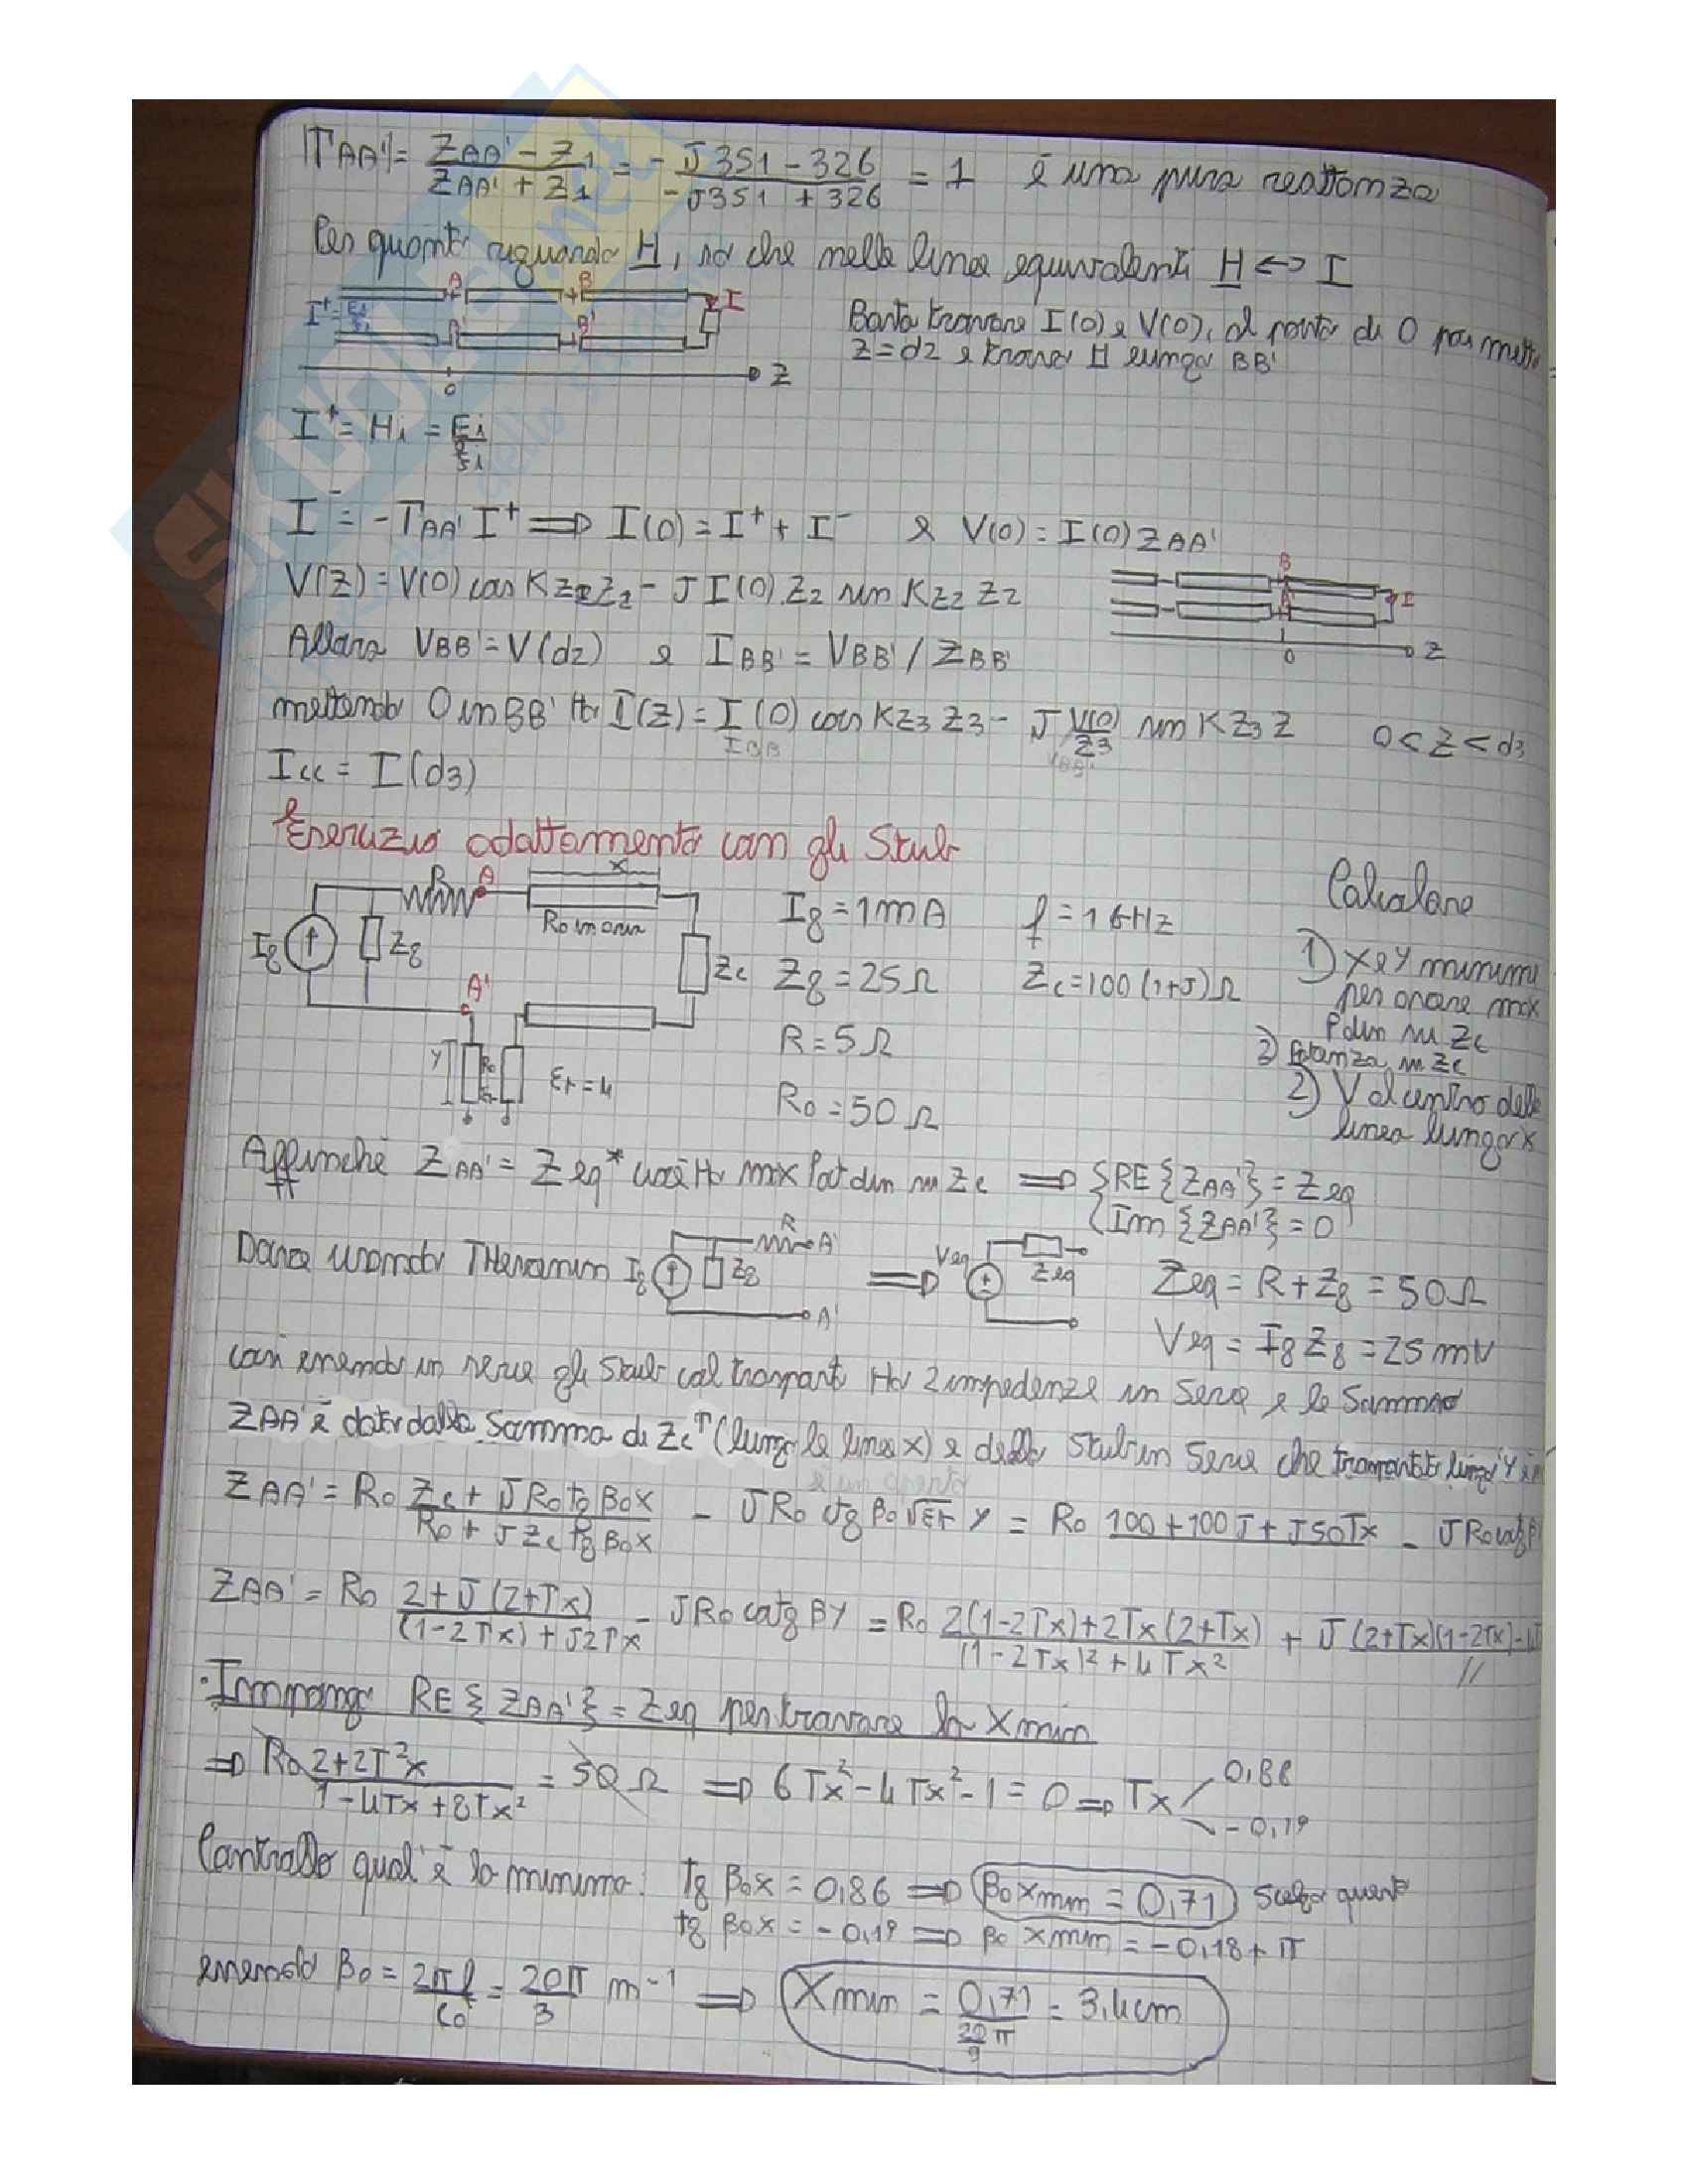 |ΓAA'| = ZAA' - Z1 / ZAA' + Z1 = -J351 - 326 / -J351 + 326 = 1 è una pura reattanza
Per quanto riguarda H, so che nelle linee equivalenti H <-> I
I+ = Ei/ξ1 A A' B B' I
Basta trovare I(0) e V(0), al posto di 0 poi metto
z = d2 e trovo H lungo BB'
0 z
I+ = Hi = Ei/ξ1
I- = -ΓAA' I+ => I(0) = I+ + I- e V(0) = I(0) ZAA'
V(z) = V(0) cos Kz2 z2 - J I(0) Z2 sin Kz2 z2
B I 0 z
Allora VBB' = V(d2) e IBB' = VBB' / ZBB'
mettendo 0 in BB' Ho I(z) = I(0) cos Kz3 z3 - J V(0)/Z3 sin Kz3 z 0 < z < d3
IBB VBB'
Icc = I(d3)
Esercizio adattamento con gli Stub
R A x
Ro in aria
Ig Zg Zc
A'
y Ro εr εr = 4
Ig = 1mA f = 1GHz
Zg = 25Ω Zc = 100(1+J)Ω
R = 5Ω
Ro = 50Ω
Calcolare
1) x e y minimi
per avere max
Pdiss su Zc
3) Potenza su Zc
2) V al centro della
linea lunga x
Affinchè ZAA' = Zeq* cioè Ho max Pot diss su Zc => {RE{ZAA'} = Zeq
{Im{ZAA'} = 0
Devo usando THevenin Ig Zg R A' A' => Veq Zeq
Zeq = R + Zg = 50Ω
Veq = Ig Zg = 25mV
così essendo in serie gli Stub col trasporto Ho 2 impedenze in Serie e le Sommo
ZAA' è dato dalla Somma di Zc↑ (lungo la linea x) e dello Stub in Serie che trasporto lungo y
ZAA' = Ro Zc + JRo tg βox / Ro + JZc tg βox - JRo ctg βo√εr y = Ro 100 + 100J + J50Tx - JRo cotg β
ZAA' = Ro 2 + J(2+Tx) / (1-2Tx) + J2Tx - JRo cotg βy = Ro 2(1-2Tx) + 2Tx(2+Tx) / (1-2Tx)² + 4Tx² + J (2+Tx)(1-2Tx)-4T / //
·Impongo RE{ZAA'} = Zeq per trovare la Xmin
=> Ro 2+2T²x / 1-4Tx+8Tx² = 50Ω => 6Tx² - 4Tx² - 1 = 0 => Tx 0,86
-0,19
Controllo qual'è la minima: tg βox = 0,86 => βoxmin = 0,71 Scelgo questo
tg βox = -0,19 => βo xmin = -0,18 + π
essendo βo = 2πf/Co = 20π/3 m-1 => Xmin = 0,71 / 20/9 π = 3,4cm